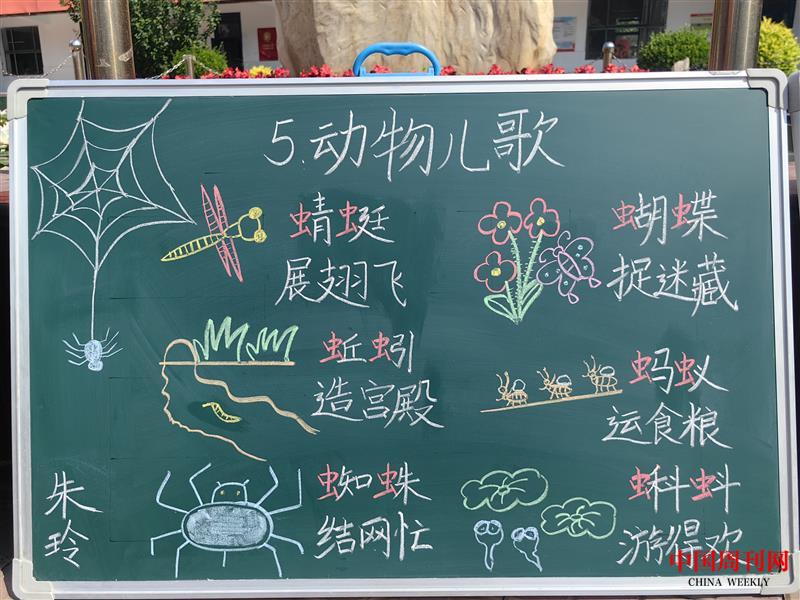 5.动物儿歌
蜻蜓
展翅飞
蝴蝶
捉迷藏
蚯蚓
造宫殿
蚂蚁
运食粮
蜘蛛
结网忙
蝌蚪
游得欢
朱玲
中国周刊网
CHINA WEEKLY